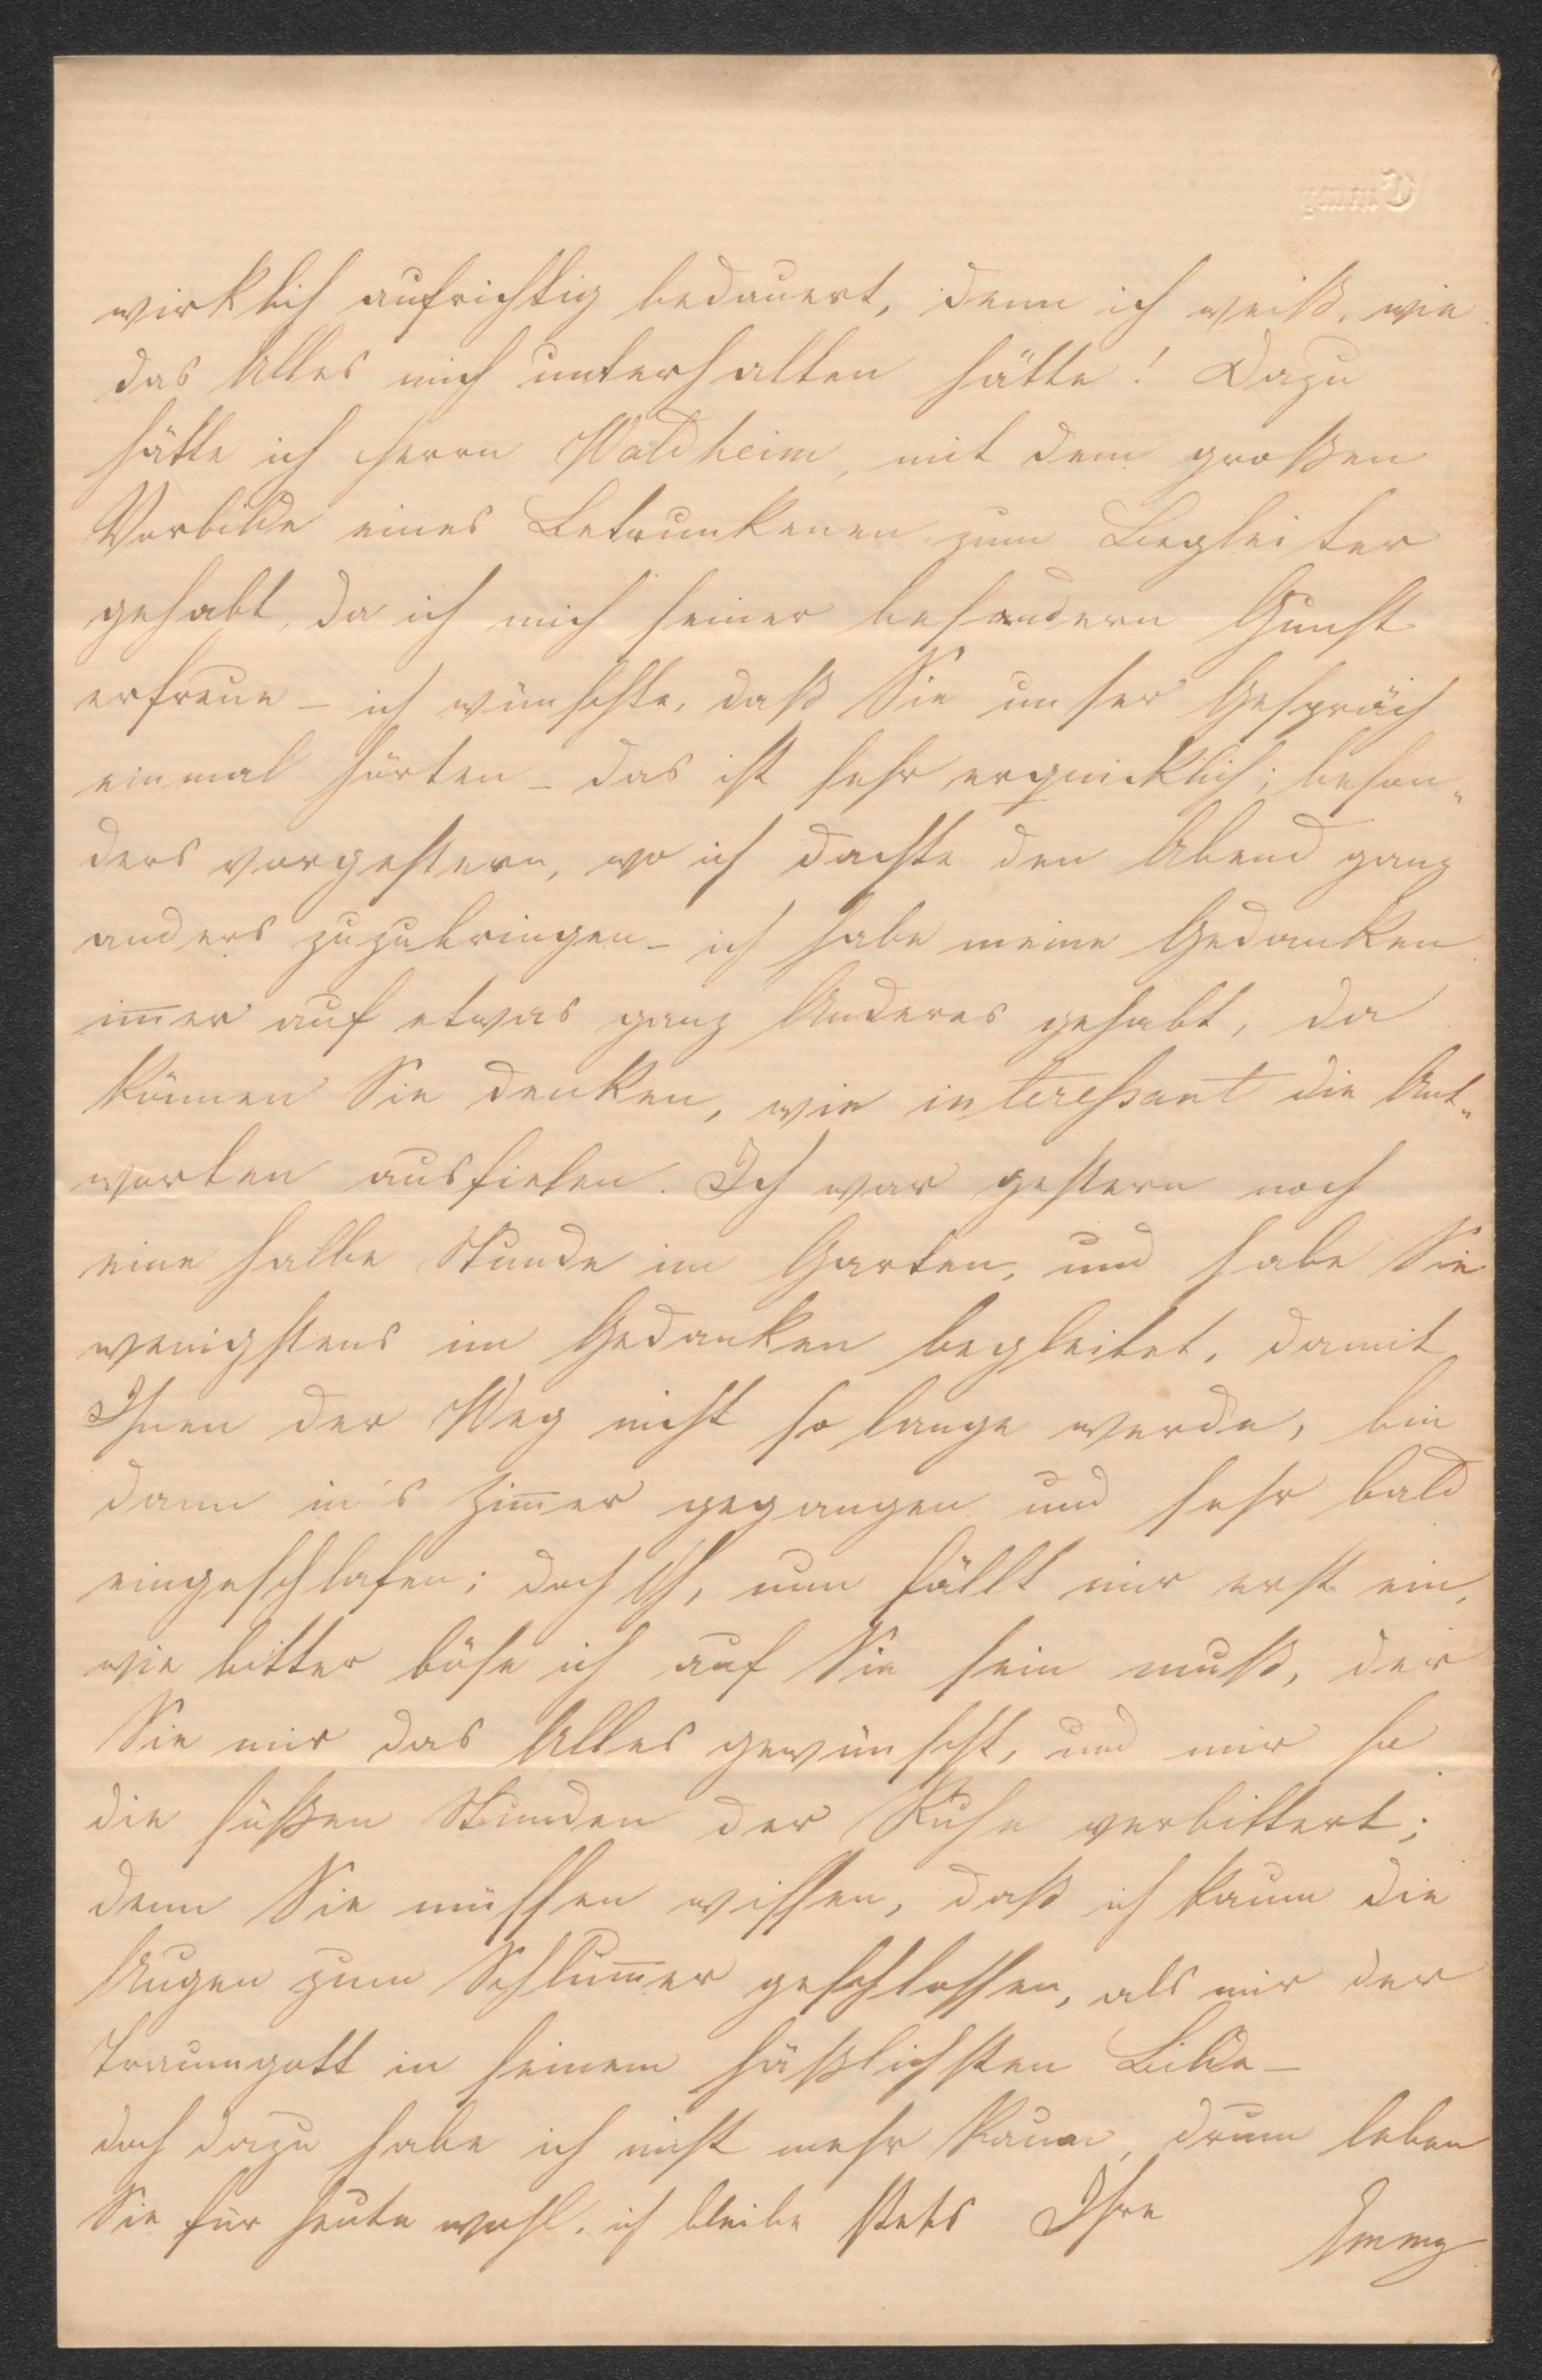 Emmy
wirklich aufrichtig bedauert, denn ich weiß, wie
das Alles mich unterhalten hätte! Dazu
hätte ich Herrn Waldheim, mit dem großen
Vorbilde eines Betrunkenen zum Begleiter
gehabt, da ich mich seiner besondern Gunst
erfreue – ich wünschte, daß Sie unser Gespräch
einmal hörten – das ist sehr erquicklich; beson„
ders vorgestern, wo ich dachte den Abend ganz
anders zuzubringen – ich habe meine Gedanken
im̅er auf etwas ganz Anderes gehabt, da
können Sie denken, wie interessant die Ant„
worten ausfielen. Ich war gestern noch
eine halbe Stunde im Garten, und habe Sie
wenigstens im Gedanken begleitet, damit
Ihnen der Weg nicht so lange werde, bin
dann in's Zim̅er gegangen und sehr bald
eingeschlafen; doch ich, nun fällt mir erst ein,
wie bitter böse ich auf Sie sein muß, der
Sie mir das Alles gewünscht, und mir so
die süßen Stunden der Ruhe verbittert;
denn Sie müssen wissen, daß ich kaum die
Augen zum Schlum̅er geschlossen, als mir der
Traumgott in seinem häßlichsten Bilde –
doch dazu habe ich nicht mehr Raum, drum leben
Sie für heute wohl, ich bleibe stets Ihre
Emmy